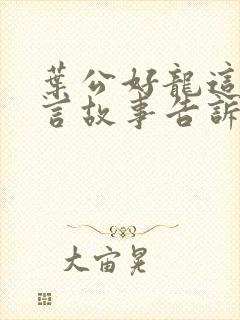 葉公好龍這
言故事告訴
大宙晃